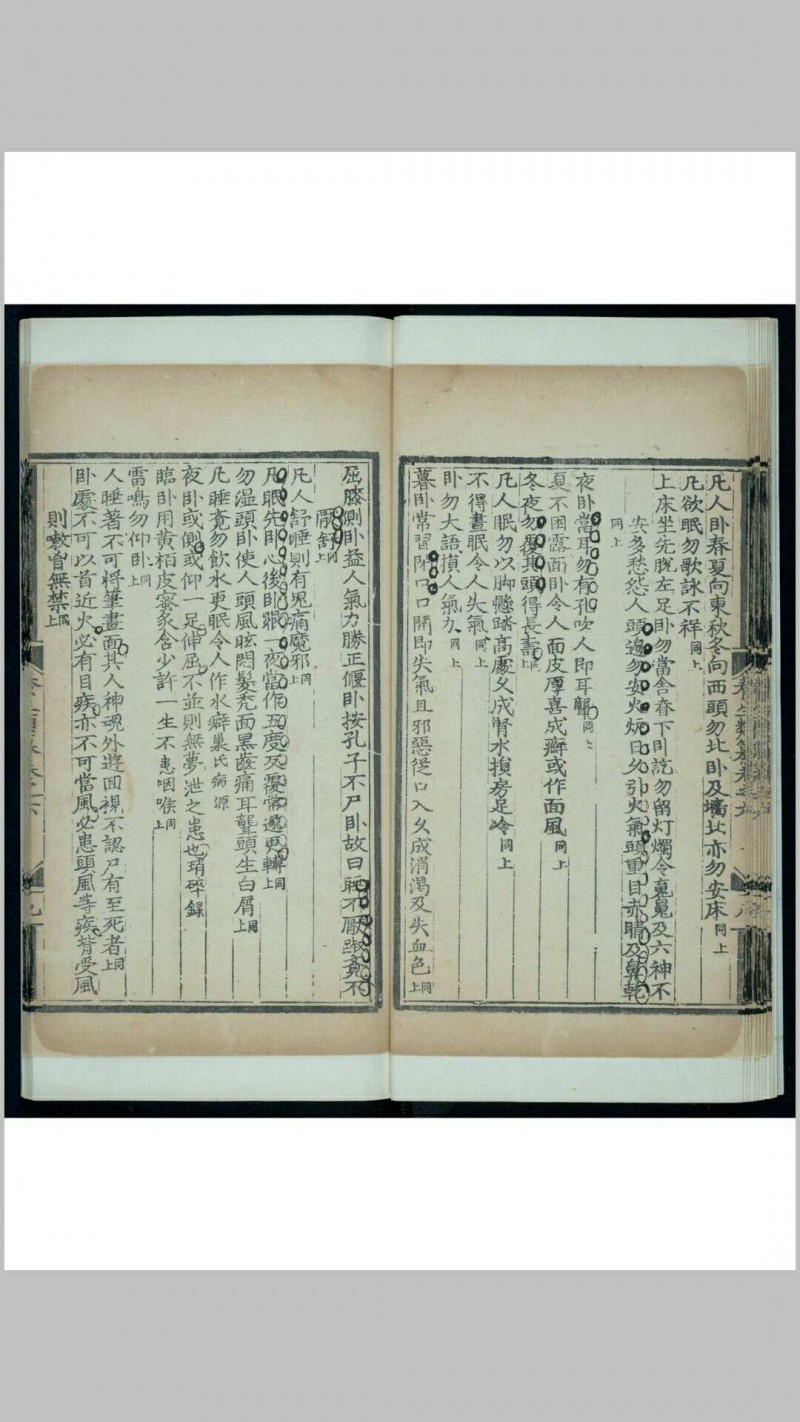 凡人卧春夏向東秋冬向西頭勿北卧及墻北亦勿安床同上
凡欲眠勿歌詠不祥同上
上床坐先脫左足卧勿當舍春下卧訖勿留灯燭令䰟魄及六神不
安多愁怨人頭邊勿安火炉日久引火氣頭重目赤睛及鼻乾
同上
夜卧當耳勿有孔吹人即耳聾同上
夏不困露面卧令人面皮厚喜成癬或作面風同上
冬夜勿覆其頭得長壽同上
凡人眠勿以脚懸踏高處久成腎水損房足冷同上
不得晝眠令人失氣同上
卧勿大語損人氣力同上
暮卧常習閉口口開即失氣且邪惡從口入久成消渴及失血色同上
屈膝側卧益人氣力勝正偃卧按孔子不尸卧故曰睡不厭踧覺不
厭舒同上
凡人舒睡則有鬼痛魔邪同上
凡眠先卧心後卧眼一夜當作五度反覆常逐更轉同上
勿濕頭卧使人頭風眩悶髮禿面黑齒痛耳聾頭生白屑同上
凡睡覺勿飲水更眠令人作水癖巢氏病源
夜卧或側或仰一足伸屈不並則無夢泄之患也瑣碎録
臨卧用黃栢皮蜜炙含少許一生不患咽喉同上
雷鳴勿仰卧同上
人睡著不可將筆畫面其人神魂外遊回視不認尸有至死者同上
卧處不可以首近火必有目疾亦不可當風必患頭風等疾背受風
則嗽皆無禁同上